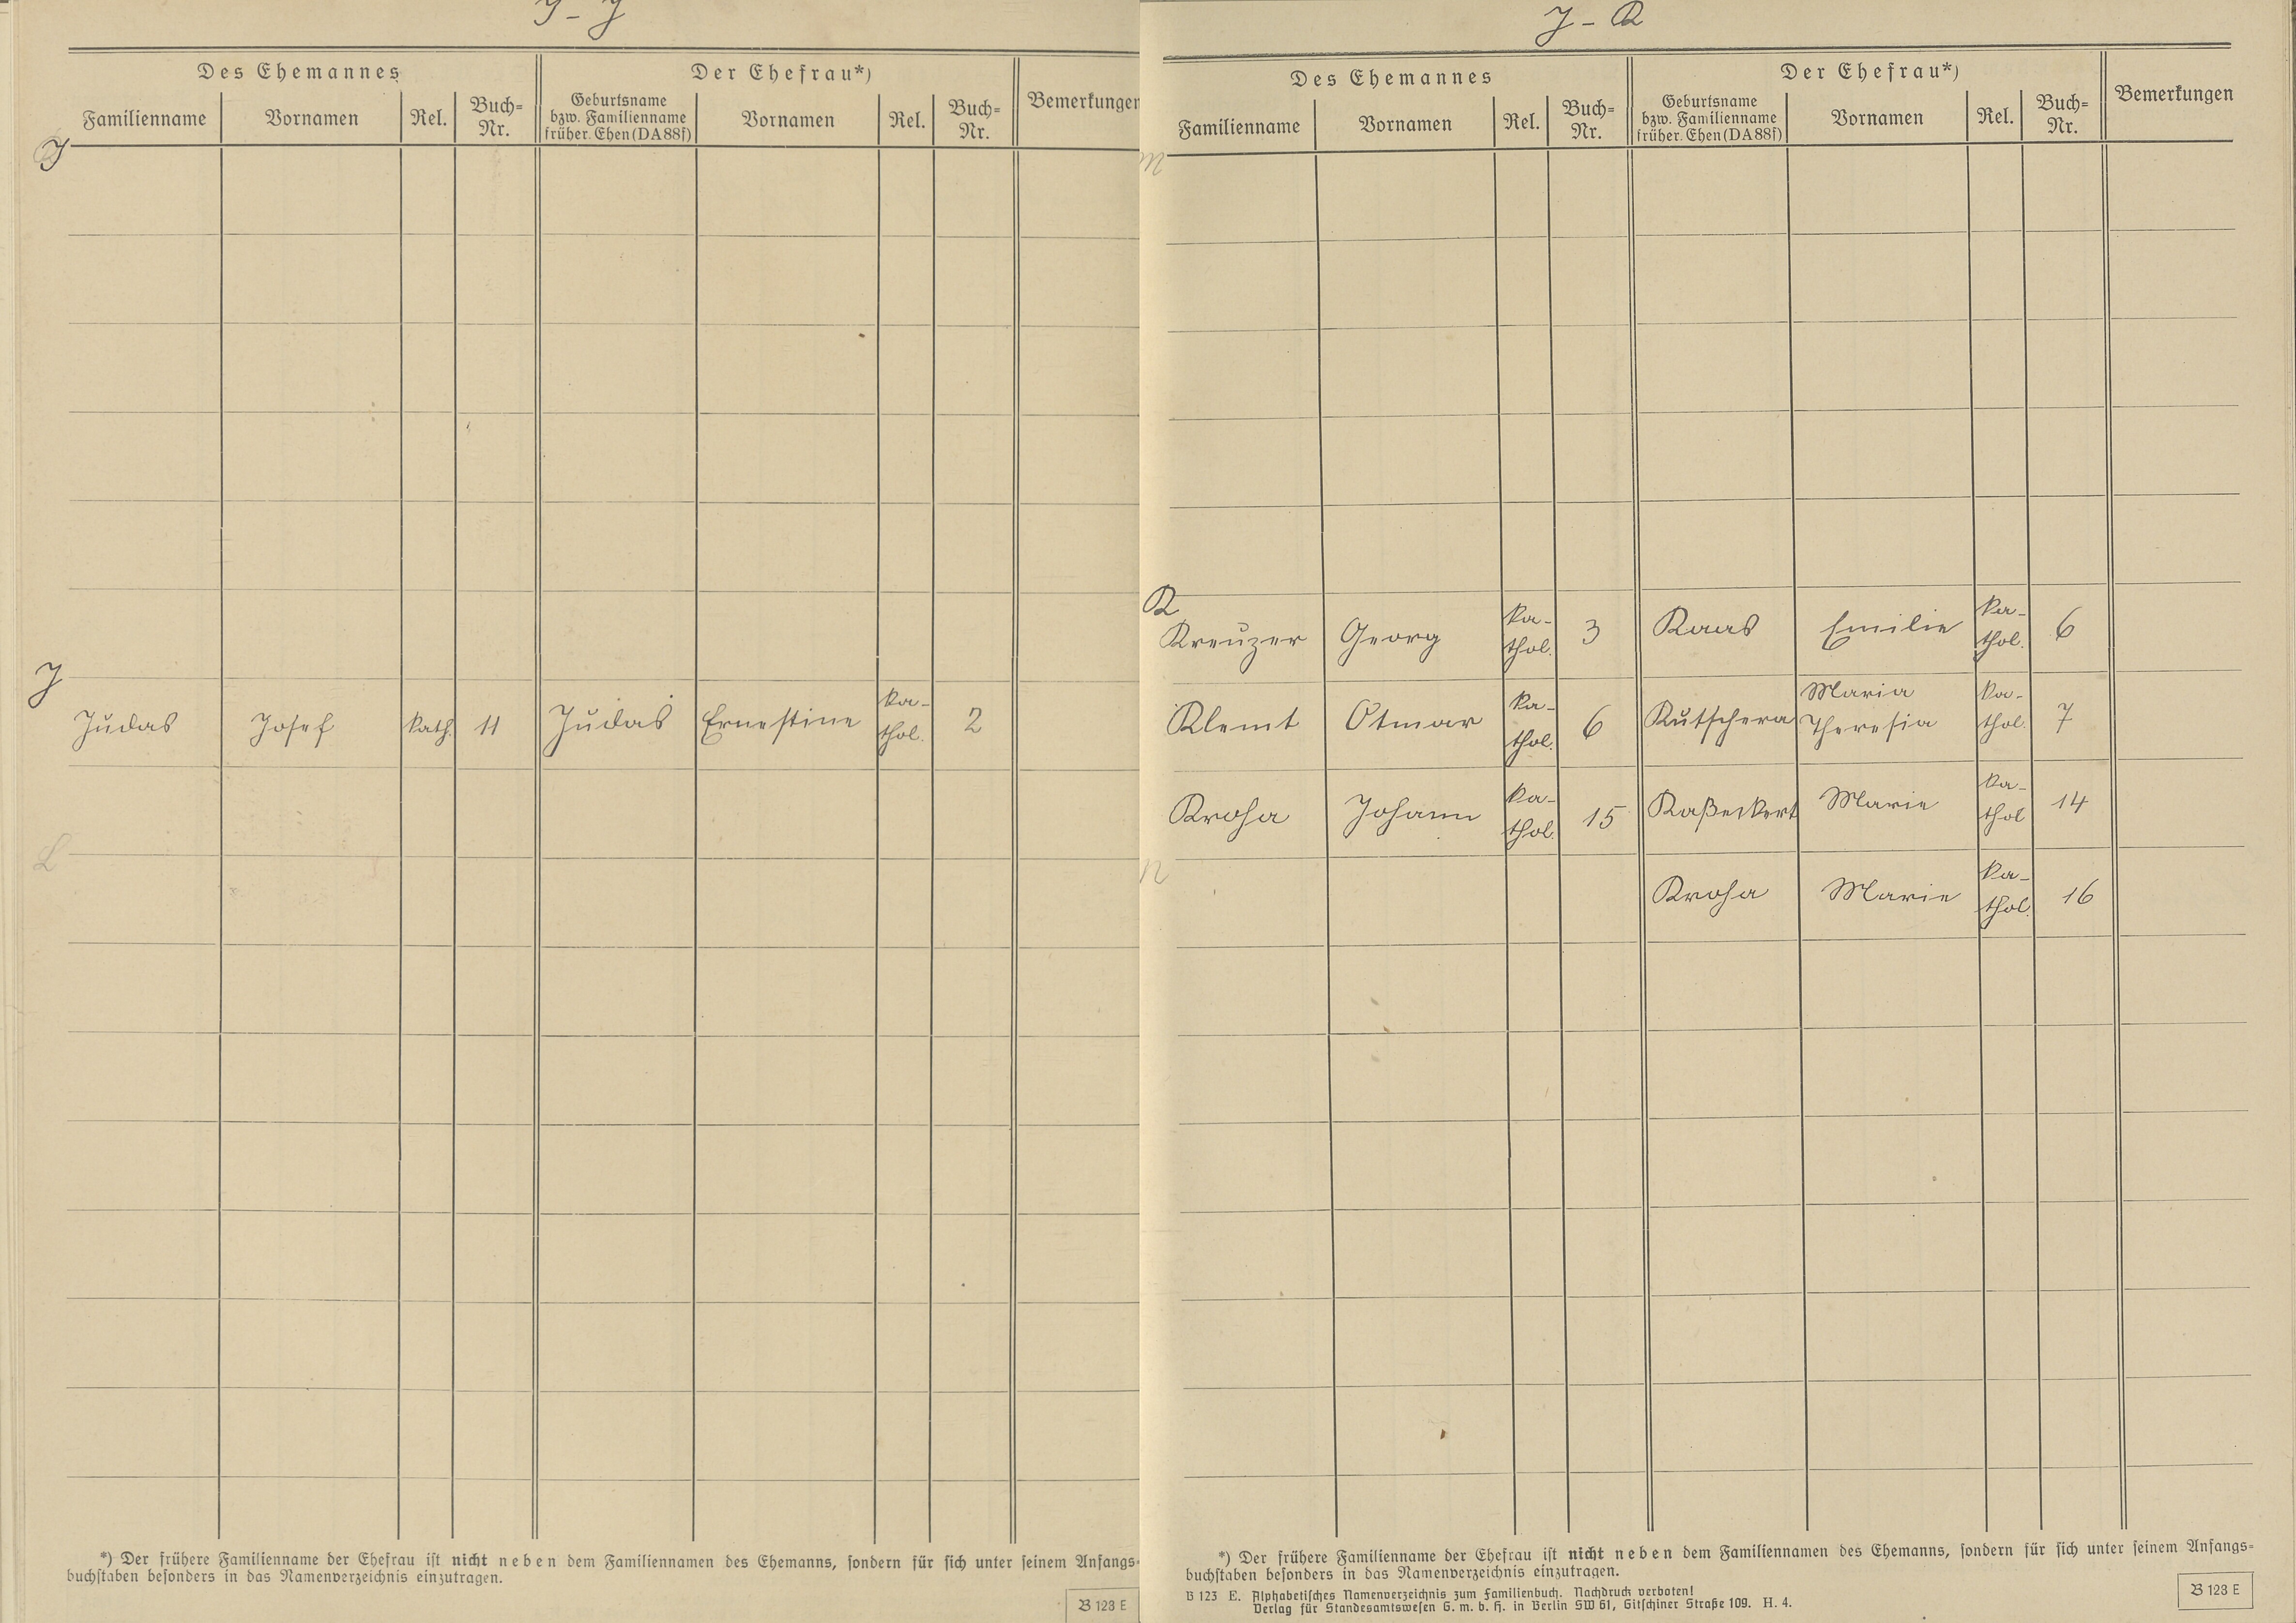 J - J
Des Ehemannes
Der Ehefrau*)
Bemerkungen
Familienname
Vornamen
Rel.
Buch=
Nr.
Geburtsname
bzw. Familienname
früher. Ehen (DA 88f)
Vornamen
Rel.
Buch=
Nr.
J
J
Judas Josef kath. 11 Judas Ernestine ka-
thol. 2
L
*) Der frühere Familienname der Ehefrau ist nicht neben dem Familiennamen des Ehemanns, sondern für sich unter seinem Anfangs=
buchstaben besonders in das Namenverzeichnis einzutragen.
B 123 E
J - K
Des Ehemannes
Der Ehefrau*)
Bemerkungen
Familienname
Vornamen
Rel.
Buch=
Nr.
Geburtsname
bzw. Familienname
früher. Ehen (DA 88f)
Vornamen
Rel.
Buch=
Nr.
M
K
Kreuzer Georg ka-
thol. 3 Kaas Emilie ka-
thol. 6
Klemt Otmar ka-
thol. 6 Kutschera Maria
Theresia ka-
thol. 7
Kroha Johann ka-
thol. 15 Kaßeckert Marie ka-
thol 14
N
Kroha Marie ka-
thol. 16
*) Der frühere Familienname der Ehefrau ist nicht neben dem Familiennamen des Ehemanns, sondern für sich unter seinem Anfangs=
buchstaben besonders in das Namenverzeichnis einzutragen.
B 123 E. Alphabetisches Namenverzeichnis zum Familienbuch. Nachdruck verboten!
Verlag für Standesamtswesen G. m. b. H. in Berlin SW 61, Gitschiner Straße 109. H. 4.
B 123 E